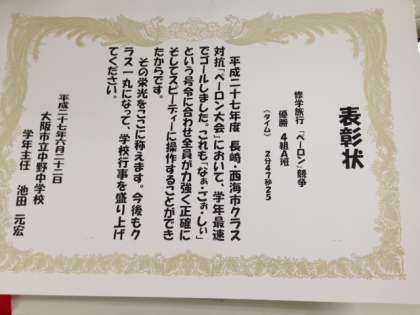 表彰状
修学旅行「ペーロン」競争
優勝 4組A班
(タイム) 2分47秒25
平成二十七年度 長崎・西海市クラス
対抗「ペーロン大会」において、学年最速
でゴールしました。これも「なぁ・ごぉ・しぃ」
という号令に合わせ全員が力強く正確に
そしてスピーディーに操作することができ
たからです。
その栄光をここに称えます。今後もク
ラス一丸になって、学校行事を盛り上げ
てください。
平成二十七年六月二十二日
大阪市立中野中学校
学年主任 池田 元宏